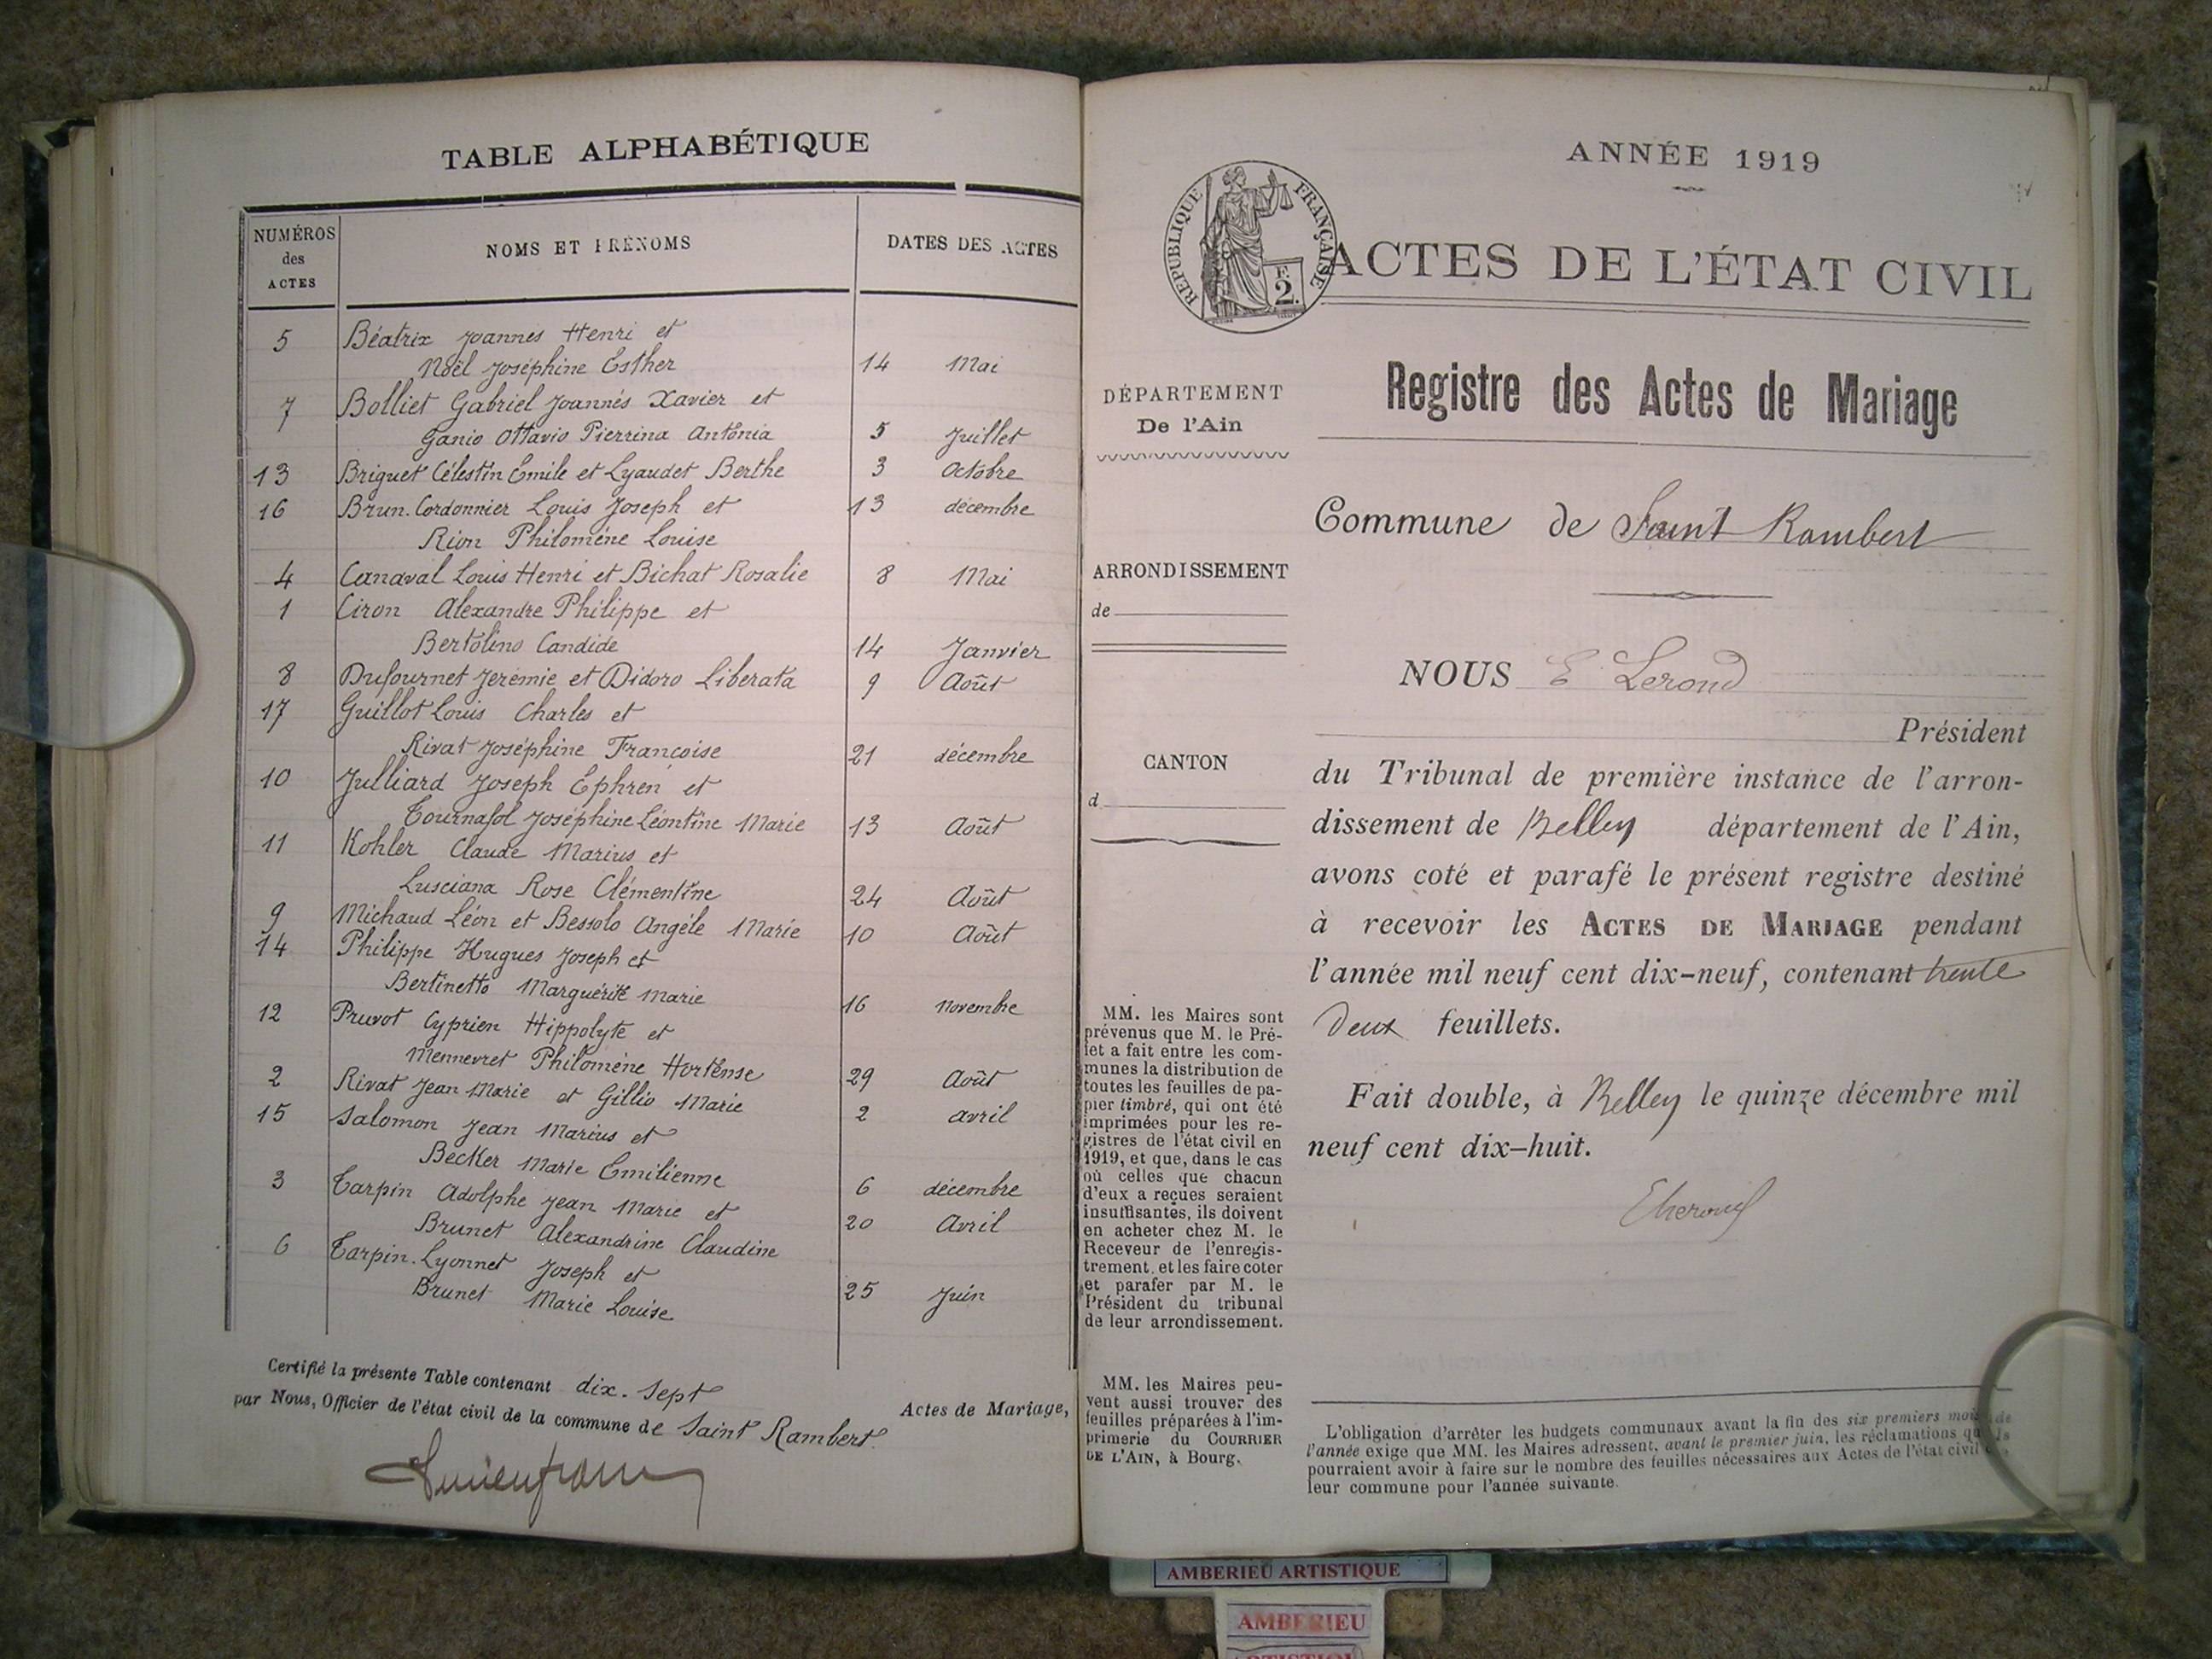 TABLE ALPHABÉTIQUE
NUMÉROS des ACTES
NOMS ET PRÉNOMS
DATES DES ACTES
5 Béatrix Joannes Henri et
Noël Joséphine Esther 14 Mai
7 Bolliet Gabriel Joannès Xavier et
Ganio Ottavio Pierrina Antonia 5 Juillet
13 Briguet Célestin Emile et Lyaudet Berthe 3 Octobre
16 Brun.Cordonnier Louis Joseph et 13 décembre
Rion Philomène Louise
4 Canaval Louis Henri et Bichat Rosalie 8 Mai
1 Ciron Alexandre Philippe et
Bertolino Candide 14 Janvier
8 Dufournet Jeremie et Didoro Liberata 9 Août
17 Guillot Louis Charles et
Rivat Joséphine Francoise 21 décembre
10 Julliard Joseph Ephren et
Tournafol Joséphine Léontine Marie 13 Août
11 Kohler Claude Marius et
Lusciana Rose Clémentine 24 Août
9 Michaud Léon et Bessolo Angèle Marie 10 Août
14 Philippe Hugues Joseph et
Bertinetto Marguérite Marie 16 Novembre
12 Pruvot Cyprien Hippolyte et
Mennevret Philomène Hortense 29 Août
2 Rivat Jean Marie et Gillio Marie 2 avril
15 Salomon Jean Marius et
Becker Marie Emilienne 6 décembre
3 Tarpin Adolphe Jean Marie et 20 Avril
Brunet Alexandrine Claudine
6 Tarpin.Lyonnet Joseph et
Brunet Marie Louise 25 Juin
Certifié la présente Table contenant dix.sept Actes de Mariage,
par Nous, Officier de l'état civil de la commune de Saint Rambert.
ANNÉE 1919
RÉPUBLIQUE FRANÇAISE
F.
2.
ACTES DE L'ÉTAT CIVIL
DÉPARTEMENT
De l'Ain
ARRONDISSEMENT
de
CANTON
d
MM. les Maires sont
prévenus que M. le Pré-
fet a fait entre les com-
munes la distribution de
toutes les feuilles de pa-
pier timbré, qui ont été
imprimées pour les re-
gistres de l'état civil en
1919, et que, dans le cas
où celles que chacun
d'eux a reçues seraient
insuffisantes, ils doivent
en acheter chez M. le
Receveur de l'enregis-
trement, et les faire coter
et parafer par M. le
Président du tribunal
de leur arrondissement.
MM. les Maires peu-
vent aussi trouver des
feuilles préparées à l'im-
primerie du COURRIER
DE L'AIN, à Bourg.
Registre des Actes de Mariage
Commune de Saint Rambert
NOUS E Lerond
Président
du Tribunal de première instance de l'arron-
dissement de Belley département de l'Ain,
avons coté et parafé le présent registre destiné
à recevoir les ACTES DE MARIAGE pendant
l'année mil neuf cent dix-neuf, contenant trente
Deux feuillets.
Fait double, à Belley le quinze décembre mil
neuf cent dix-huit.
L'obligation d'arrêter les budgets communaux avant la fin des six premiers mois de
l'année exige que MM. les Maires adressent, avant le premier juin, les réclamations
pourraient avoir à faire sur le nombre des feuilles nécessaires aux Actes de l'état civil
leur commune pour l'année suivante.
AMBERIEU ARTISTIQUE
AMBERIEU